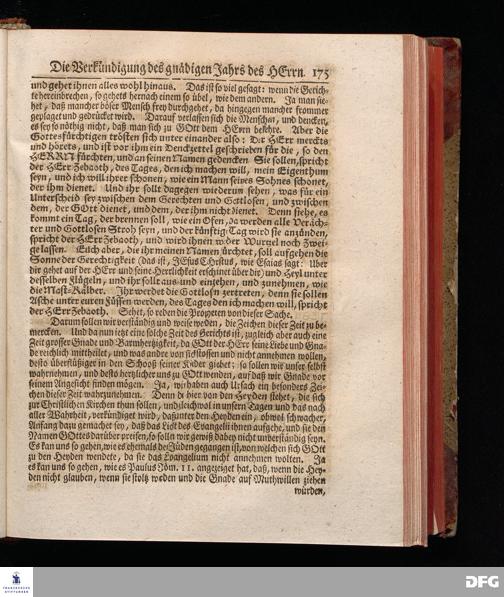 Die Verkündigung des gnädigen Jahrs des HErrn. 175
und gehet ihnen alles wohl hinaus. Das ist so viel gesagt: wenn die Gerich-
te hereinbrechen, so gehets hernach einem so übel, wie dem andern. Ja man sie-
het, daß mancher böser Mensch frey durchgehet, da hingegen mancher frommer
geplaget und gedrücket wird. Darauf verlassen sich die Menschen, und dencken,
es sey so nöthig nicht, daß man sich zu GOtt dem HErrn bekehre. Aber die
Gottsfürchtigen trösten sich unter einander also: Der HErr merckts
und hörets, und ist vor ihm ein Denckzettel geschrieben für die, so den
HERRN fürchten, und an seinen Namen gedencken Sie sollen, spricht
der HErr Zebaoth, des Tages, den ich machen will, mein Eigenthum
seyn, und ich will ihrer schonen, wie ein Mann seines Sohnes schonet,
der ihm dienet. Und ihr sollt dagegen wiederum sehen, was für ein
Unterscheid sey zwischen dem Gerechten und Gottlosen, und zwischen
dem, der GOtt dienet, und dem, der ihm nicht dienet. Denn siehe, es
kommt ein Tag, der brennen soll, wie ein Ofen, da werden alle Veräch-
ter und Gottlosen Stroh seyn, und der künftige Tag wird sie anzünden,
spricht der HErr Zebaoth, und wird ihnen weder Wurzel noch Zwei-
ge lassen. Euch aber, die ihr meinen Namen fürchtet, soll aufgehen die
Sonne der Gerechtigkeit (das ist, JEsus Christus, wie Esaias sagt: Uber
dir gehet auf der HErr und seine Herrlichkeit erscheinet über dir) und Heyl unter
desselben Flügeln, und ihr sollt aus und eingehen, und zunehmen, wie
die Mast-Kälber. Ihr werdet die Gottlosen zertreten, denn sie sollen
Asche unter euren Füssen werden, des Tages den ich machen will, spricht
der HErr Zebaoth. Sehet, so reden die Propheten von dieser Sache.
Darum sollen wir verständig und weise werden, die Zeichen dieser Zeit zu be-
mercken. Und da nun jetzt eine solche Zeit des Gerichts ist, zugleich aber auch eine
Zeit grosser Gnade und Barmherzigkeit, da GOtt der HErr seine Liebe und Gna-
de reichlich mittheilet, und was andre von sich stossen und nicht annehmen wollen,
desto überflüßiger in den Schooß seiner Kinder giebet: so sollen wir unser selbst
wahrnehmen, und desto herzlicher uns zu GOtt wenden, auf daß wir Gnade vor
seinem Angesicht finden mögen. Ja, wir haben auch Ursach ein besonders Zei-
chen dieser Zeit wahrzunehmen. Denn da hier von den Heyden stehet, die sich
zur Christlichen Kirchen thun sollen, und gleichwol in unsern Tagen und das nach
aller Wahrheit, verkündiget wird, daß unter den Heyden ein, obwol schwacher,
Anfang dazu gemachet sey, daß das Licht des Evangelii ihnen aufgehe, und sie den
Namen GOttes darüber preisen, so solln wir gewiß dabey nicht unverständig seyn.
Es kan uns so gehen, wie es ehemals den Jüden gegangen ist, von welchen sich GOtt
zu den Heyden wendete, da sie das Evangelium nicht annehmen wolten. Ja
es kan uns so gehen, wie es Paulus Röm. 11. angezeiget hat, daß, wenn die Hey-
den nicht glauben, wenn sie stoltz weden und die Gnade auf Muthwillen ziehen
würden,
FRANCKESCHE
STIFTUNGEN
DFG